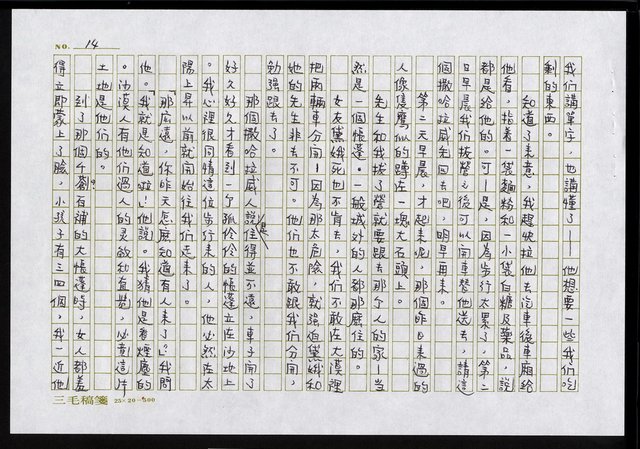 NO. 14
我們講單字,也講懂了——他想要一些我們吃
剩的東西。
知道了來意,我趕快拉他去汽車後車廂給
他看,指著一袋麵粉和一小袋白糖及藥品,說
都是給他的。可是,因為步行太累了,第二
日早晨我們拔營之後可以開車替他送去,請這
個撒哈拉威先回去吧,明早再來。
第二天早晨,才起來呢,那個昨日來過的
人像石像似的蹲在一塊大石頭上。
先生和我拔了營就要跟去那個人的家——當
然是一個帳篷。一般城外的人都那麼住的。
女友黛娥死也不肯去,我們不敢在大漠裡
把兩輛車分開——因為那太危險,就強迫黛娥和
她的先生非去不可。他們也不敢跟我們分開,
勉強跟去了。
那個撒哈拉威人說住得並不遠,車子開了
好久好久才看到一個孤伶伶的帳篷立在沙地上
。我心裡很同情這位步行來的人,他必然在太
陽上昇以前就開始往我們走來了。
「那麼遠,你昨天怎麼知道有人來了?」我問
他。「我就是知道啦!」他說。我猜他是看煙塵的
。沙漠人有他們過人的靈敏和直覺,必竟這片
土地是他們的。
到了那個千瘡百補的大帳篷時,女人都羞
得立即蒙上了臉,小孩子有三四個,我一近他
三毛稿箋 25×20=500